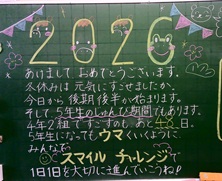 2026
あけまして おめでとうございます。
冬休みは 元気にすごせましたか。
今日から 後期後半が始まります。
そして5年生のじゅんび期間でもあります。
4年2組ですごすのも、あと46日。
5年生になっても ウマくいくように
みんなで
スマイル チャレンジで
1日1日を大切に進んでいこうね!